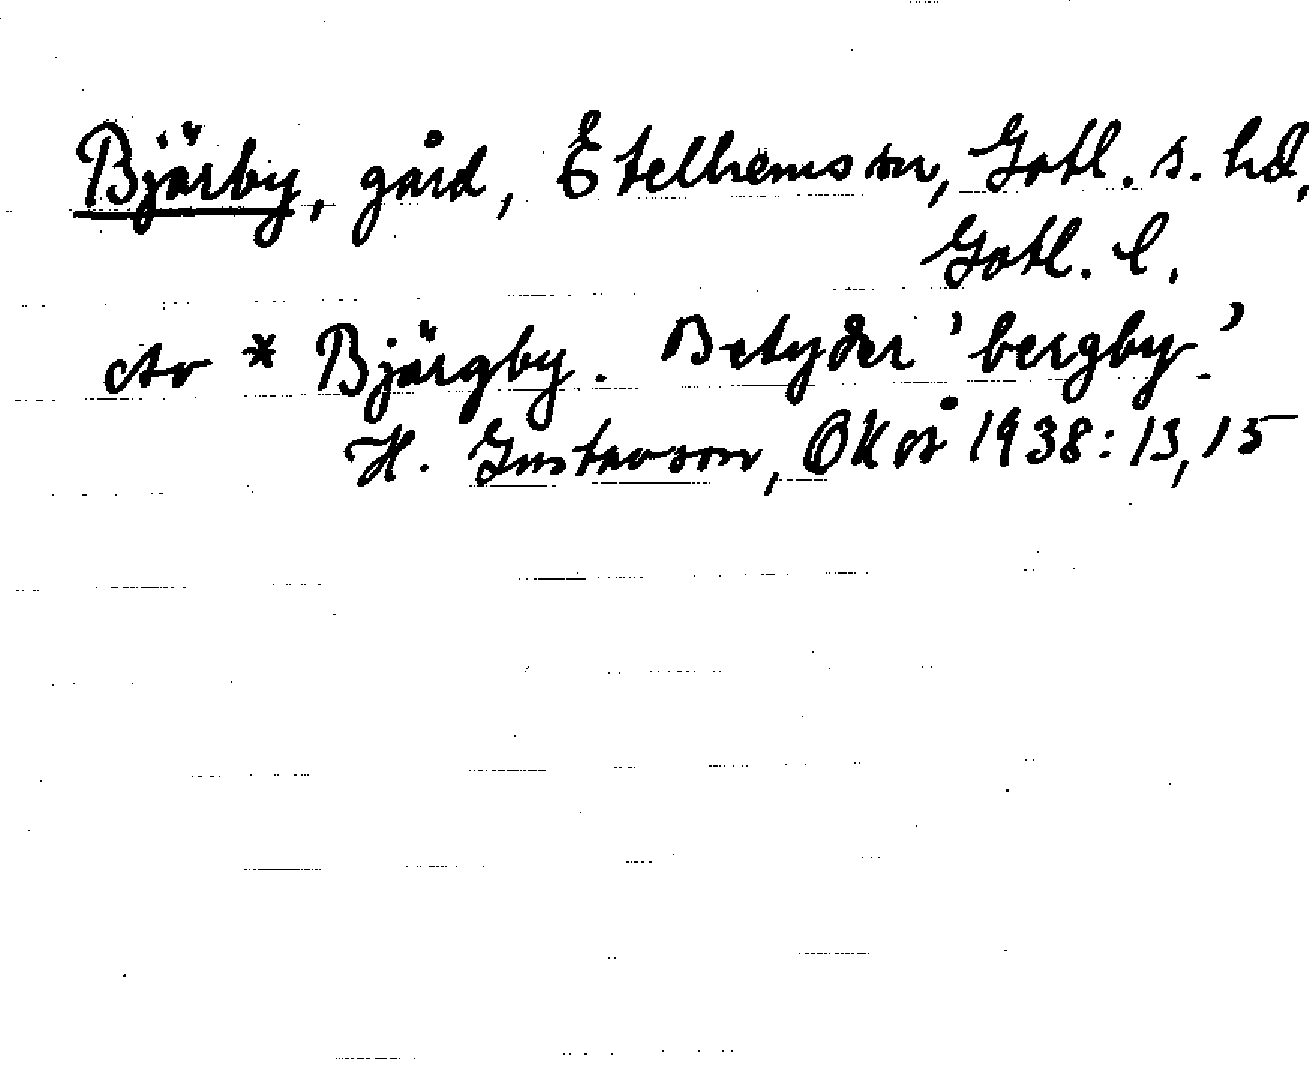 Bjärby, gård, Etelhems sn, Gotl. s. hd,
Gotl. l.
Av * Bjärgby. Betyder 'bergby.'
H. Gustavson, OKoÅ 1938: 13, 15